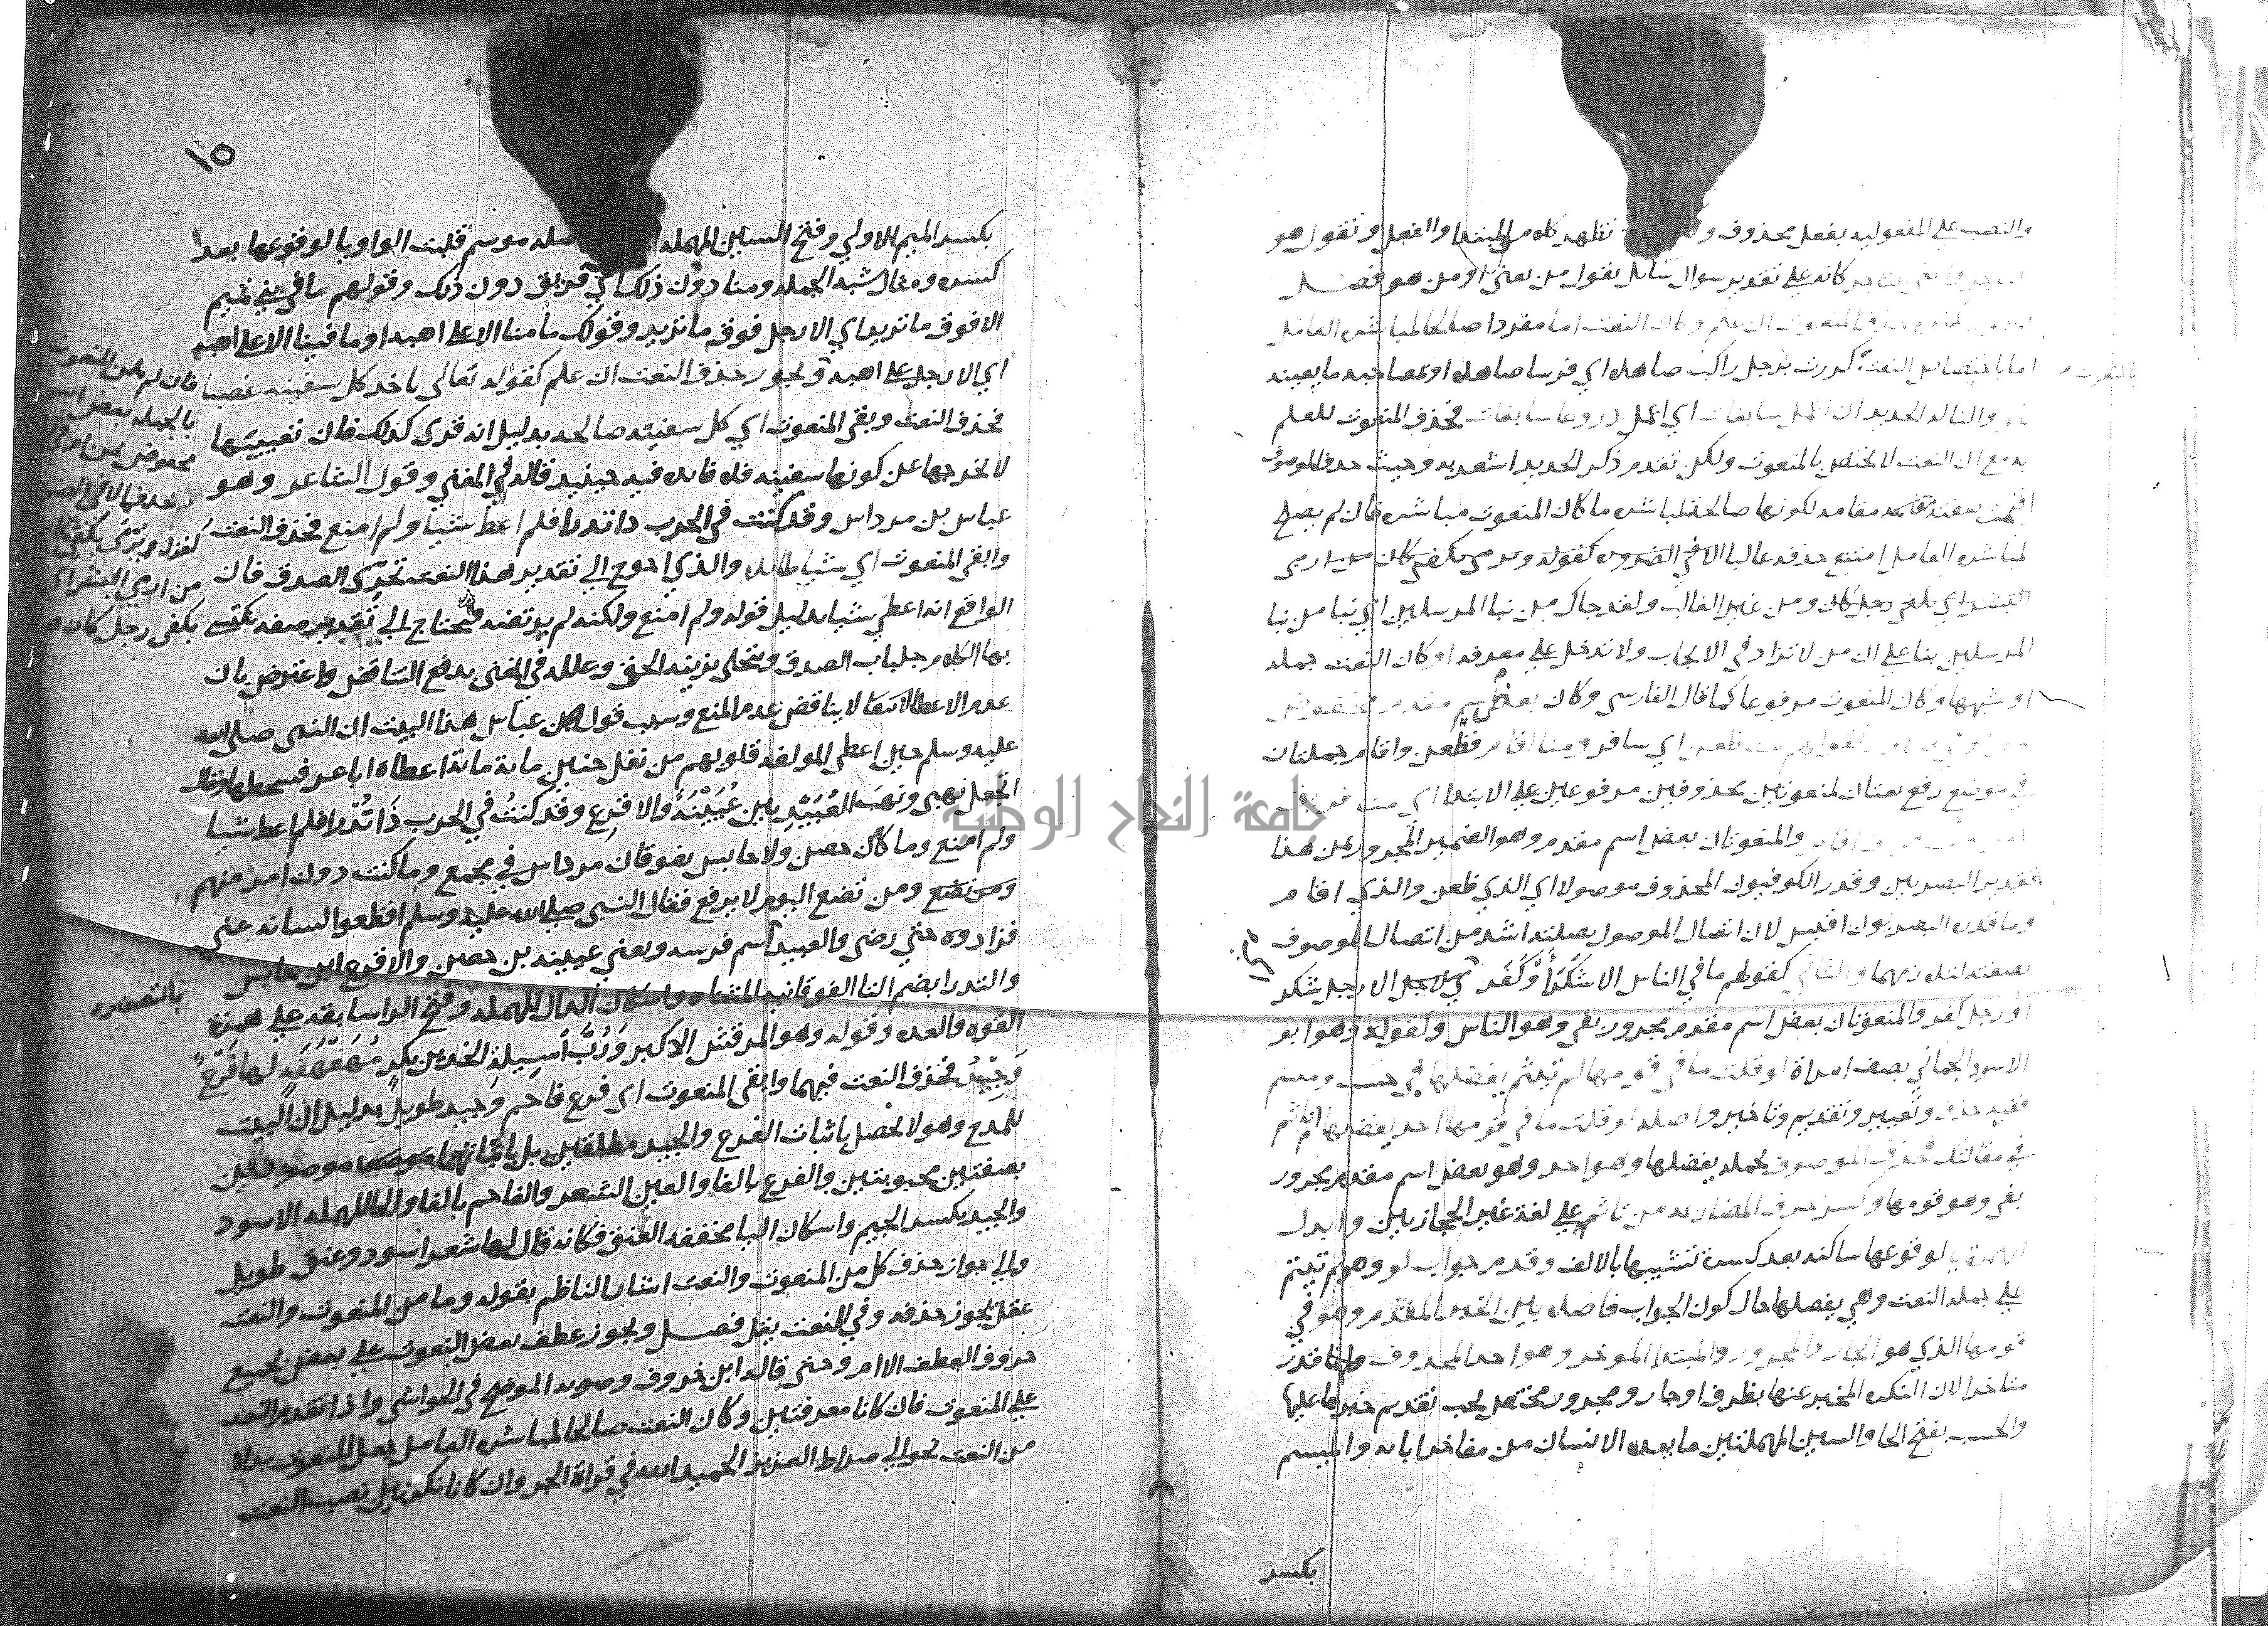 والنصب علي المفعوليه بفعل محذوف و تظهر كلا من المبتدا والفعل وتقول هو
كانه علي تقدير سوال سايل يقول من يعني او من هو فصل
المنعوت ان علم وكان النعت اما مفردا صالحا لمباشرة العامل
اما باختصاص النعت كمررت برجل راكب صاهلا اي فرسا صاهلا او بمصاحبة ما يعينه
والنا له الحديد ان اعمل سابغات اي اعمل دروعا سابغات فحذف المنعوت للعلم
به مع ان النعت لا يختص بالمنعوت ولكن تقدم ذكر الحديد اشعر به وحيث حذف الموصوف
اقيمت صفته مقامه لكونها صالحة لمباشرة ما كان المنعوت مباشره فان لم يصلح
لمباشرة العامل امتنع حذفه غالبا الا في الضرورة كقوله ويرمي بكفي كان من ارمى
البشر اي بكفي رجل كان ومن غير الغالب ولقد جاك من نبا المرسلين اي نبا من نبا
المرسلين بنا علي ان من لا تزاد في الايجاب ولا تدخل علي معرفه او كان النعت جمله
او شبهها وكان المنعوت مرفوعا كما قال الفارسي وكان بعض اسم مقدم مخفوض
ظعن اي سافر ومنا اقام فظعن واقام جملتان
في موضع رفع نعتان لمنعوتين محذوفين مرفوعين علي الابتدا اي منا فريق
والمنعوتان بعض اسم مقدم وهو الضمير المجرور بمن هذا
تقدير البصريين وقدر الكوفيون المحذوف موصولا اي الذي ظعن والذي اقام
وما قدره البصريون اقيس لان اتصال الموصول بصلته اشد من اتصال الموصوف
بصفته لتلازمهما والثاني كقولهم ما في الناس الا شكر او كفر اي الا رجل شكر
او رجل كفر والمنعوتان بعض اسم مقدم مجرور بفي وهو الناس وكقوله وهو ابو
الاسود الجماني يصف امراة لو قلت ما في قومها لم تيثم يفضلها في حسب وميسم
ففيه حذف وتغيير وتقديم وتاخير واصله لو قلت ما في قومها احد يفضلها لم تاثم
في مقالتك فحذف الموصوف بجمله يفضلها وهو احد وهو بعض اسم مقدم مجرور
بفي وهو قومها وكسر حرف المضارعه من تاثم علي لغة غير الحجازيين وابدل
الهمزة يا لوقوعها ساكنه بعد كسرة تشبيها بالالف وقدم جواب لو وهو لم تيثم
علي جمله النعت وهي يفضلها حال كون الجواب فاصلا بين الخبر المقدم وهو في
قومها الذي هو الجار والمجرور والمبتدا الموخر وهو احد المحذوف وانما قدر
متاخرا لان النكره المخبر عنها بظرف او جار ومجرور مختص يجب تقديم خبرها عليها
والحسب بفتح الحا والسين المهملتين ما يعده الانسان من مفاخر ابائه والميسم
بكسر
١٥
بكسر الميم الاولي وفتح السين المهمله اصله موسم قلبت الواو يا لوقوعها بعد
كسره ومثال شبه الجمله ومنا دون ذلك اي فريق دون ذلك وقولهم ما في بني تميم
الا فوق ما تريد اي الا رجل فوق ما تريد وقولك ما منا الا علي اهبه او ما فينا الا علي اهبه
اي الا رجل علي اهبه ويجوز حذف النعت ان علم كقوله تعالي ياخذ كل سفينه غصبا
فحذف النعت وبقي المنعوت اي كل سفينه صالحه بدليل انه قري كذلك فان تعييبها
لا يخرجها عن كونها سفينه فلا فايده فيه حينيذ قاله في المغني وقول الشاعر وهو
عباس بن مرداس وقد كنت في الحرب ذا تدرا فلم اعط شيا ولم امنع فحذف النعت
وابقي المنعوت اي شيا طايلا والذي احوج الي تقدير هذا النعت تحري الصدق فان
الواقع انه اعطي شيا بدليل قوله ولم امنع ولكنه لم يرتضه فيحتاج الي تقدير صفه يكتسي
بها الكلام جلباب الصدق ويتحلى بزينة الحق وعلله في المغني بدفع التناقض واعترض بان
عدم الاعطا لا يناقض عدم المنع وسبب قول عباس هذا البيت ان النبي صلي الله
عليه وسلم حين اعطى المولفة قلوبهم من نفل حنين ماية ماية اعطاه اباعر فسخطها وقال
اتجعل نهبي ونهب العبيد بين عيينة والاقرع وقد كنت في الحرب ذا تدرا فلم اعط شيا
ولم امنع وما كان حصن ولا حابس يفوقان مرداس في مجمع وما كنت دون امر منهم
ومن تضع ومن تضع اليوم لا يرفع فقال النبي صلي الله عليه وسلم اقطعوا لسانه عني
فزادوه حتي رضي والعبيد اسم فرسه ويعني عيينه بن حصن والاقرع ابن حابس
والتدرا بضم التا الفوقانيه المثناه واسكان الدال المهمله وفتح الرا سابقه علي همزة
القوه والعده وقوله وهو المرقش الاكبر ورب اسيلة الخدين بكر مهفهفة لها فرع
وجيد فحذف النعت فيهما وابقي المنعوت اي فرع فاحم وجيد طويل بدليل ان البيت
للمدح وهو لا يحصل باثبات الفرع والجيد مطلقين بل باثباتهما موصوفين
بصفتين محبوبتين والفرع بالفا والعين الشعر والفاحم بالفا والحا المهمله الاسود
والجيد بكسر الجيم واسكان اليا مخففه العنق فكانه قال لها شعر اسود وعنق طويل
والي جواز حذف كل من المنعوت والنعت اشار الناظم بقوله وما من المنعوت والنعت
عقل يجوز حذفه وفي النعت يقل فصل ويجوز عطف بعض النعوت علي بعض بجميع
حروف العطف الا ام وحتي قاله ابن خروف وصوبه الموضح في الحواشي واذا تقدم النعت
علي المنعوت فان كانا معرفتين وكان النعت صالحا لمباشرة العامل جعل المنعوت بدلا
من النعت نحو الي صراط العزيز الحميد الله في قراة الجر وان كانا نكرتين نصب النعت
فان لم يكن المنعوت
بالجمله بعض اسم
مخفوض بمن او في
لم يحذف الا في الضرورة
كقوله يرمي بكفي كان
من ارمي البشر اي
بكفي رجل كان
بالتصغير